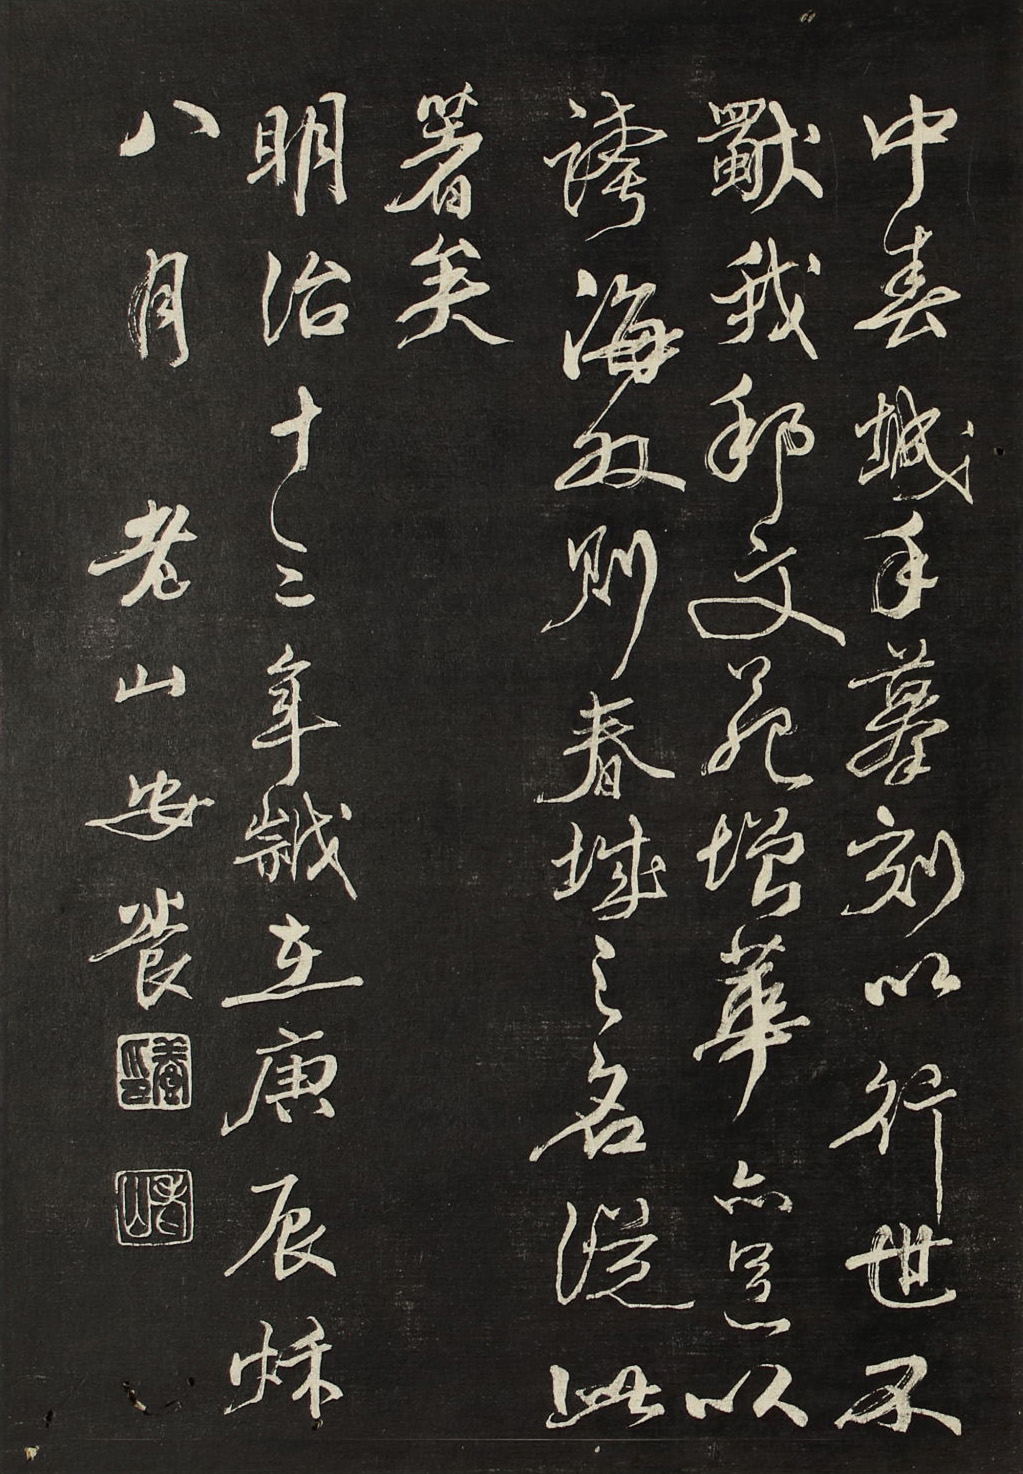 中春城手摹刻以行世不
獨我邦文苑增華亦足以
誇海外則春城之名從此
著矣
明治十三年歲在庚辰秌
八月 老山安養
老山